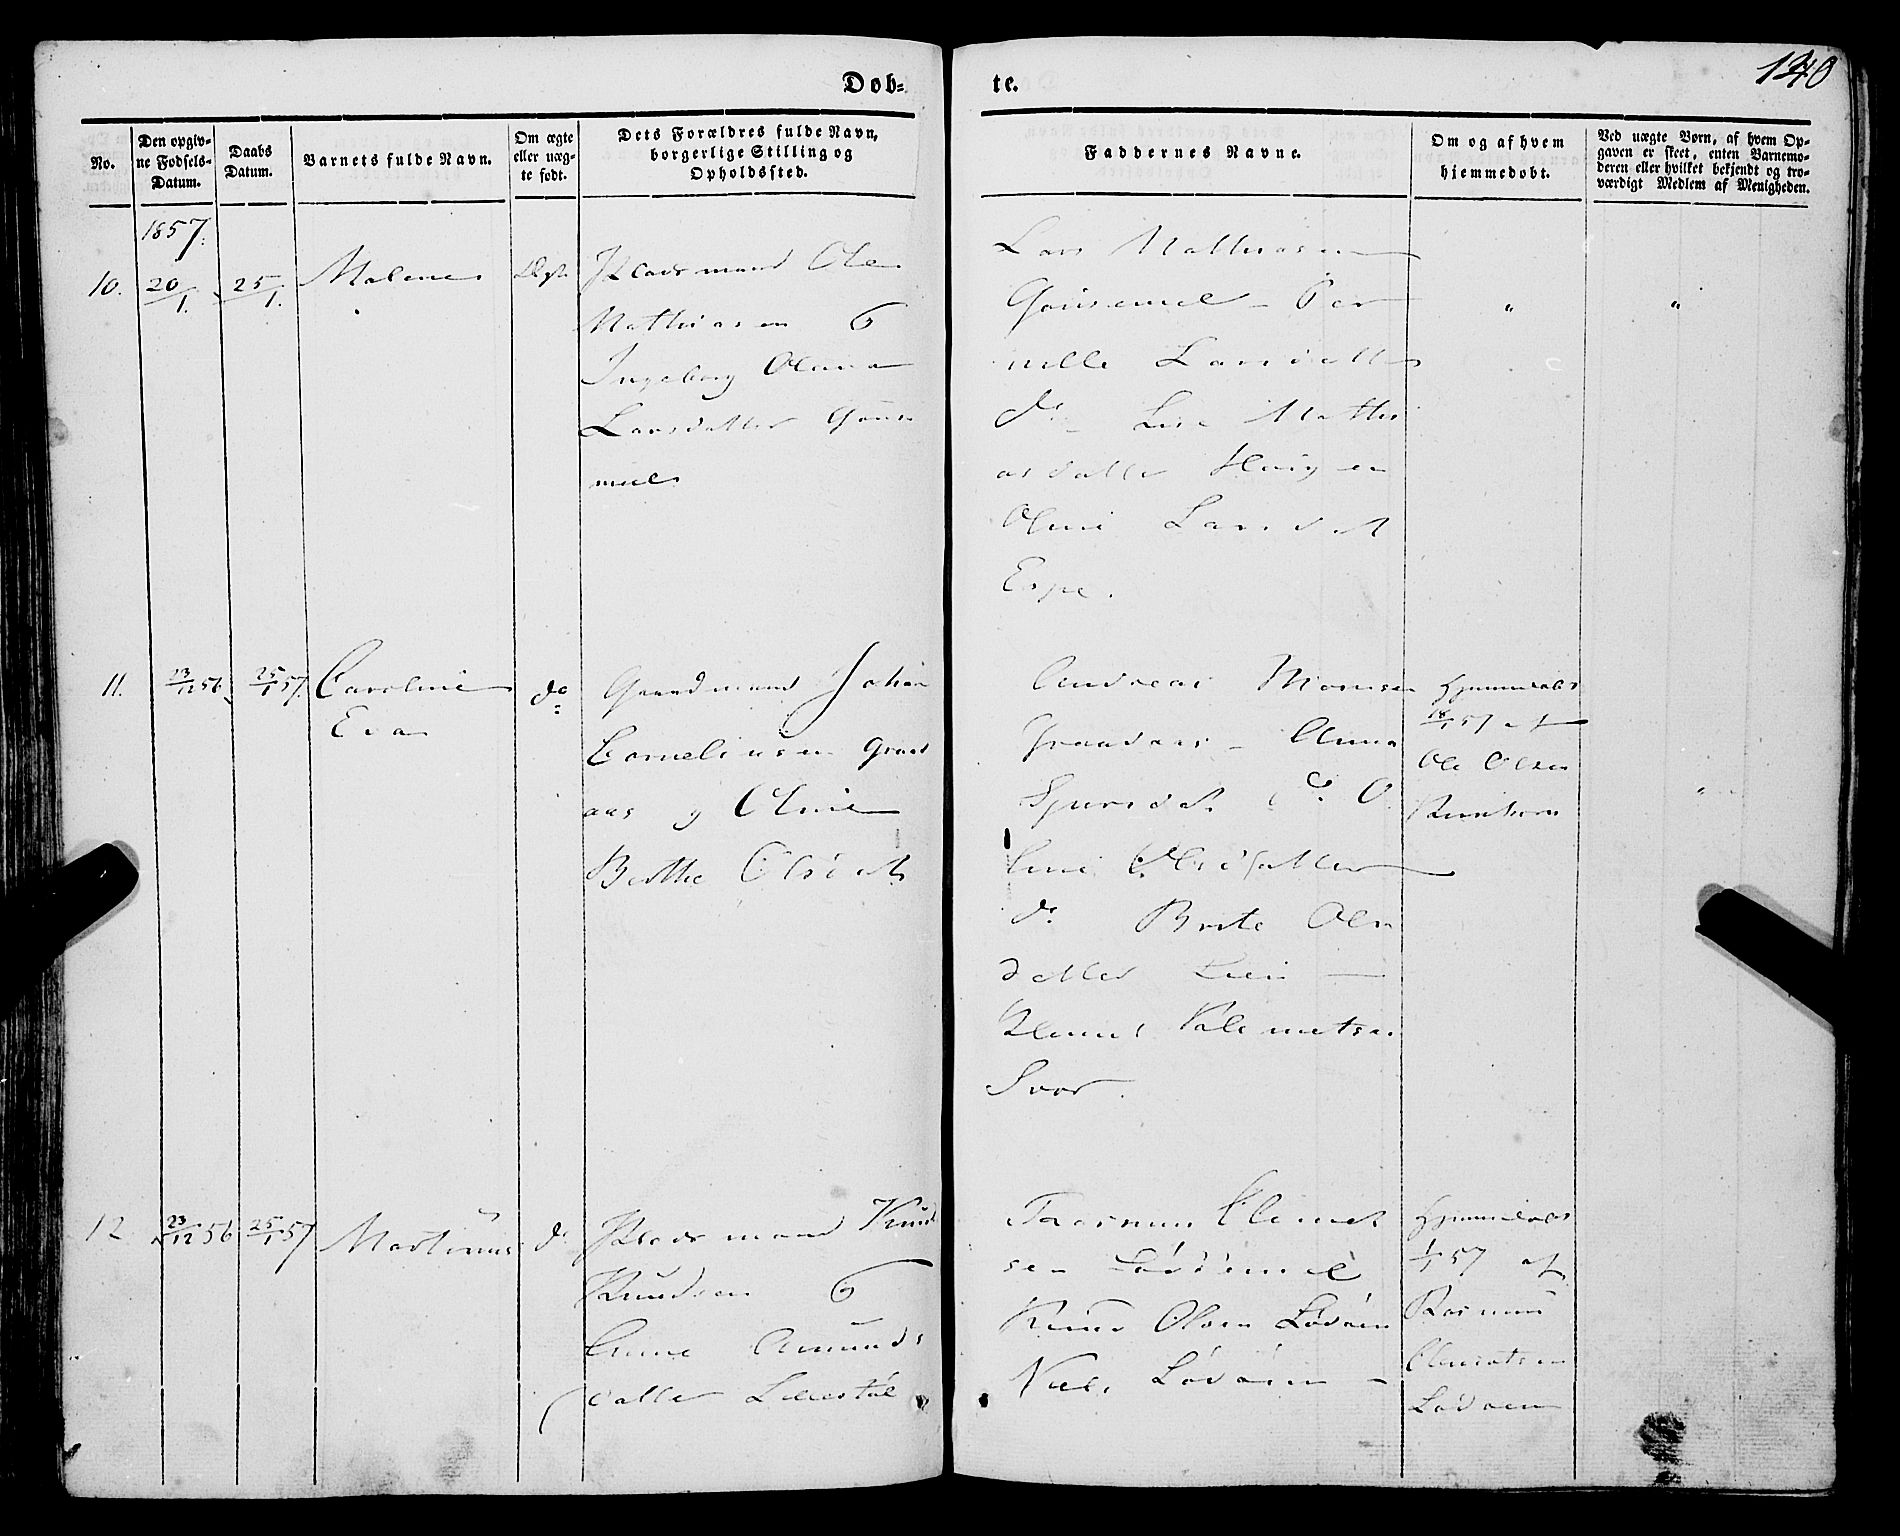 Døb-
te.
140
No.
Den opgiv-
ne Fødsels-
Datum.
Daabs
Datum.
Barnets fulde Navn.
Om ægte
eller uæg-
te født.
Dets Forældres fulde Navn,
borgerlige Stilling og
Opholdssted.
Faddernes Navne.
Om og af hvem
hjemmedøbt.
Ved uægte Børn, af hvem Op-
gaven er skeet, enten Barnemo-
deren eller hvilket bekjendt og tro-
værdigt Medlem af Menigheden.
1857.
10.
20/1.
25/1.
Malene
Ægt.
Pladsmand Ole
Mathiasen
Ingeborg Oluna
Larsdatter
Lars Mathiasen
Per
nille Larsdatter
do Lise Mathi
asdatter
Oline Larsdat
Espe.
"
"
11.
23/12 56
25/1 57
Caroline
Eva
do
Gaardmand Johan
Corneliusen Graad
aas og Oline
Berthe Olsdat
Andreas Monsen
Graadaas - Anna
do O
line Olsdatter
do Brite Ols
datter Lien
Svor.
Hjemmedøbt
18/1 57 af
Ole Olsen
"
12
23/12 56
25/1 57
Martinus
do
Pladsmand Knud
Knudsen
Anne Amunds
datter
Rasmus Clemet
sen
Knud Olsen Lødøen
Niels Lødøen
Hjemmedøbt
1/1 57 af
Rasmus
Clemetsen
Lødøen